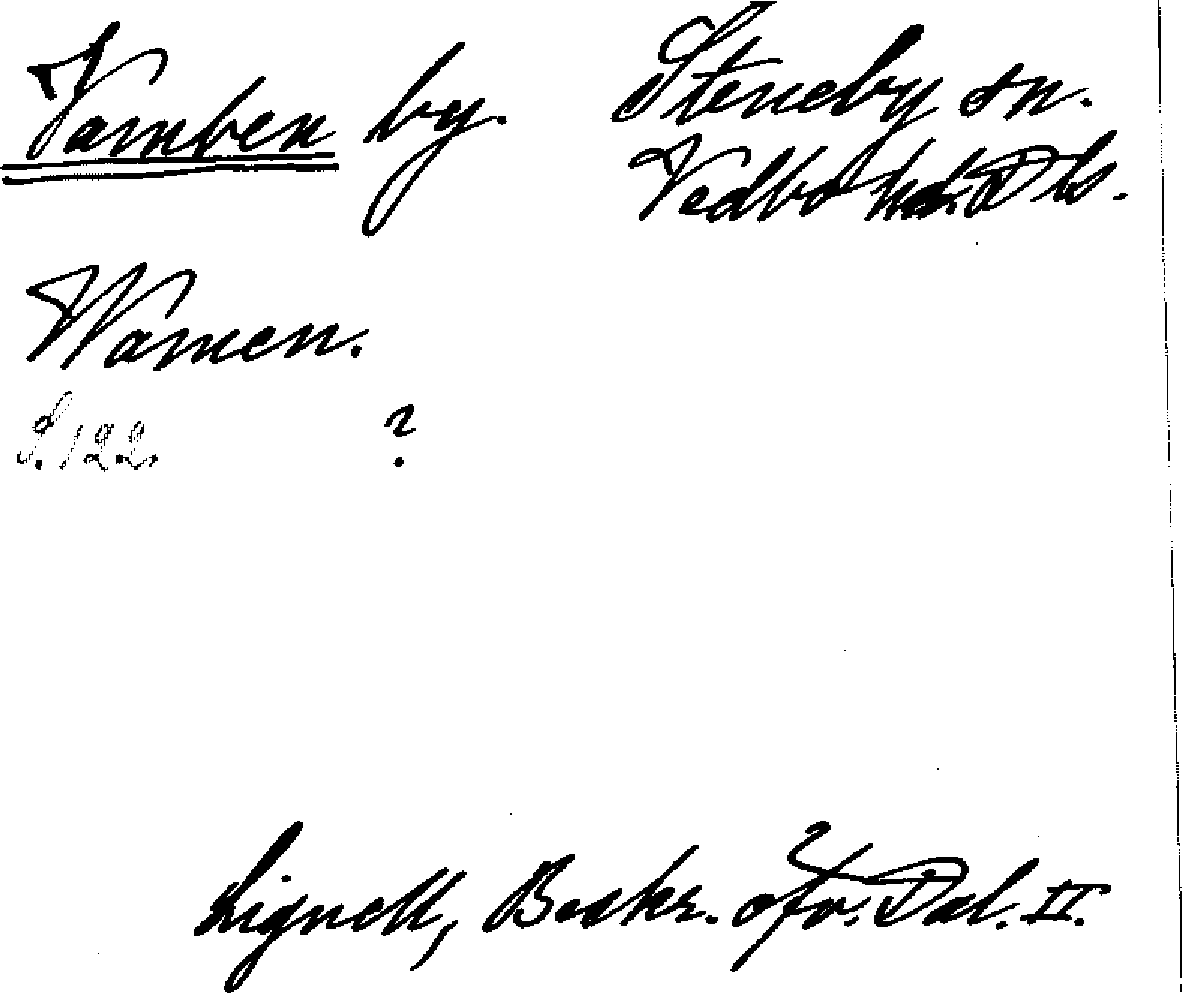 Vamben by.
Steneby sn.
Vedbo hd. Dls.
Wamen.
S. 122. ?
Lignell, Beskr. öfv. Dal. II.